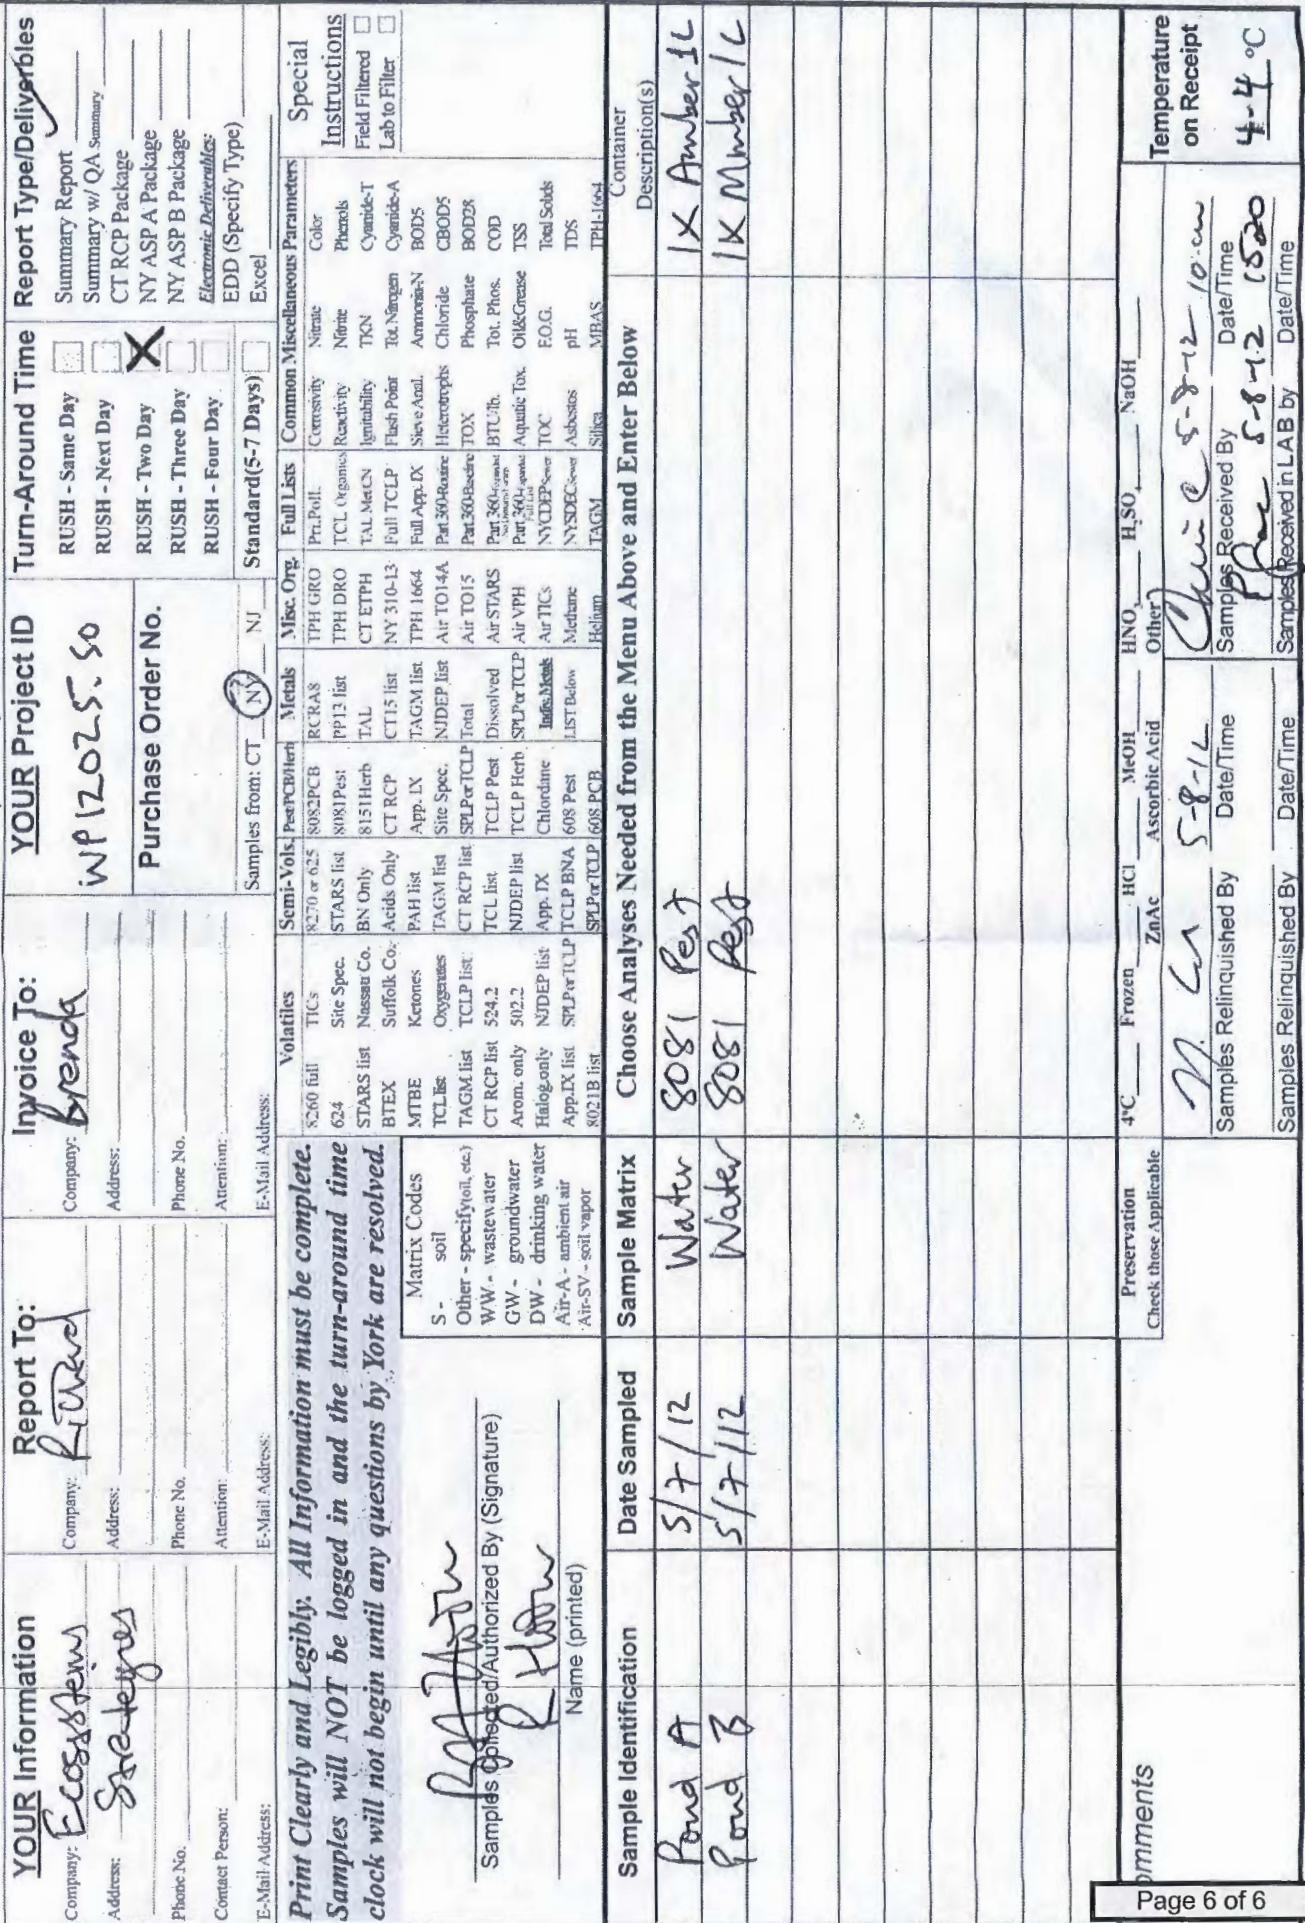 YOUR Information
Company: Ecosystems
Address: Strategies
Phone No.
Contact Person:
E-Mail Address:
Report To:
Company: Richard
Address:
Phone No.
Attention:
E-Mail Address:
Invoice To:
Company: Brenda
Address:
Phone No.
Attention:
E-Mail Address:
YOUR Project ID
WP12025.50
Purchase Order No.
Samples from: CT NY NJ
Turn-Around Time
RUSH - Same Day
RUSH - Next Day
RUSH - Two Day X
RUSH - Three Day
RUSH - Four Day
Standard(5-7 Days)
Report Type/Deliverbles
Summary Report
Summary w/ QA Summary
CT RCP Package
NY ASP A Package
NY ASP B Package
Electronic Deliverables:
EDD (Specify Type)
Excel
Print Clearly and Legibly. All Information must be complete.
Samples will NOT be logged in and the turn-around time
clock will not begin until any questions by York are resolved.
Samples Collected/Authorized By (Signature)
Name (printed)
Matrix Codes
S - soil
Other - specify(oil, etc.)
WW - wastewater
GW - groundwater
DW - drinking water
Air-A - ambient air
Air-SV - soil vapor
Volatiles
8260 full TICs
624 Site Spec.
STARS list Nassau Co.
BTEX Suffolk Co.
MTBE Ketones
TCL list Oxygenates
TAGM list TCLP list
CT RCP list 524.2
Arom. only 502.2
Halog. only NJDEP list
App.IX list SPLPorTCLP
8021B list
Semi-Vols.
8270 or 625
STARS list
BN Only
Acids Only
PAH list
TAGM list
CT RCP list
TCL list
NJDEP list
App. IX
TCLP BNA
SPLPorTCLP
Pest/PCB/Herb
8082PCB
8081Pest
8151Herb
CT RCP
App. IX
Site Spec.
SPLPorTCLP
TCLP Pest
TCLP Herb
Chlordane
608 Pest
608 PCB
Metals
RCRA8
PP13 list
TAL
CT15 list
TAGM list
NJDEP list
Total
Dissolved
SPLPorTCLP
Indiv.Metals
LIST Below
Misc. Org.
TPH GRO
TPH DRO
CT ETPH
NY 310-13
TPH 1664
Air TO14A
Air TO15
Air STARS
Air VPH
Air TICs
Methane
Helium
Full Lists
Pri.Poll.
TCL Organics
TAL MetCN
Full TCLP
Full App.IX
Part 360-Routine
Part 360-Baseline
Part 360-Expanded
Part 360-Expanded
NYCDEPSewer
NYSDECSewer
TAGM
Common Miscellaneous Parameters
Corrosivity Nitrate Color
Reactivity Nitrite Phenols
Ignitability TKN Cyanide-T
Flash Point Tot. Nitrogen Cyanide-A
Sieve Anal. Ammonia-N BOD5
Heterotrophs Chloride CBOD5
TOX Phosphate BOD28
BTU/lb. Tot. Phos. COD
Aquatic Tox. Oil&Grease TSS
TOC F.O.G. Total Solids
Asbestos pH TDS
Silica MBAS TPH-1664
Special
Instructions
Field Filtered
Lab to Filter
Sample Identification Date Sampled Sample Matrix Choose Analyses Needed from the Menu Above and Enter Below Container Description(s)
Pond A 5/7/12 Water 8081 Pest 1x Amber 1L
Pond B 5/7/12 Water 8081 Pest 1x Amber 1L
omments
Preservation
Check those Applicable
4°C Frozen HCl MeOH HNO3 H2SO4 NaOH
ZnAc Ascorbic Acid Other
5-8-12
Samples Relinquished By Date/Time
Samples Relinquished By Date/Time
5-8-12
Samples Received By Date/Time
5-8-12 1520
Samples Received in LAB by Date/Time
Temperature
on Receipt
4-4 °C
Page 6 of 6